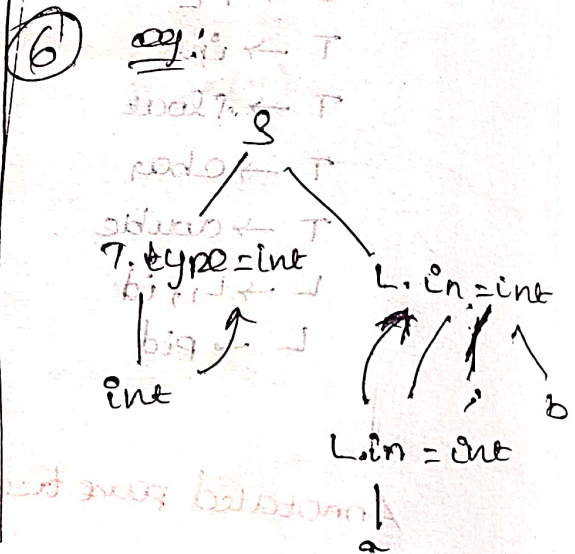 6 eg:
S
T.type=int L.in=int
int , b
L.in = int
a